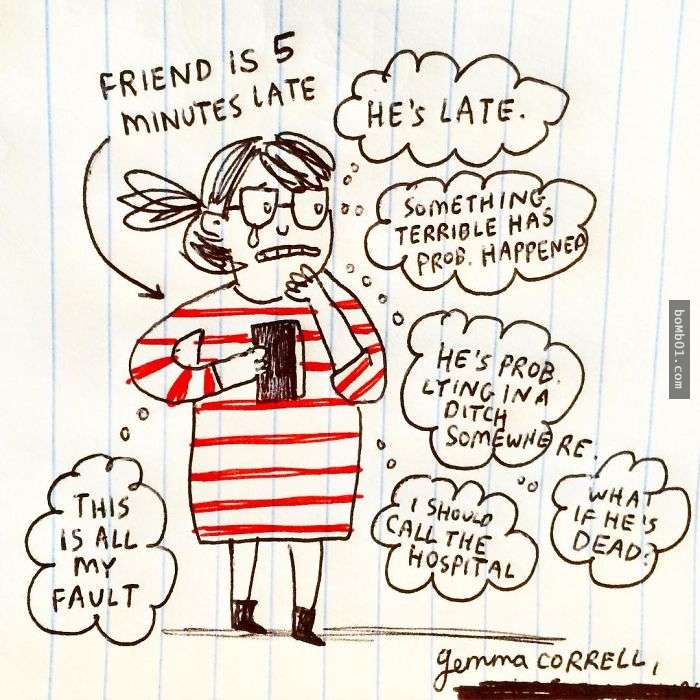 FRIEND IS 5
MINUTES LATE
HE'S LATE.
SOMETHING
TERRIBLE HAS
PROB. HAPPENED
HE'S PROB.
LYING IN A
DITCH
SOMEWHERE.
I SHOULD
CALL THE
HOSPITAL
WHAT
IF HE'S
DEAD?
THIS
IS ALL
MY
FAULT
gemma CORRELL,
bomb01.com